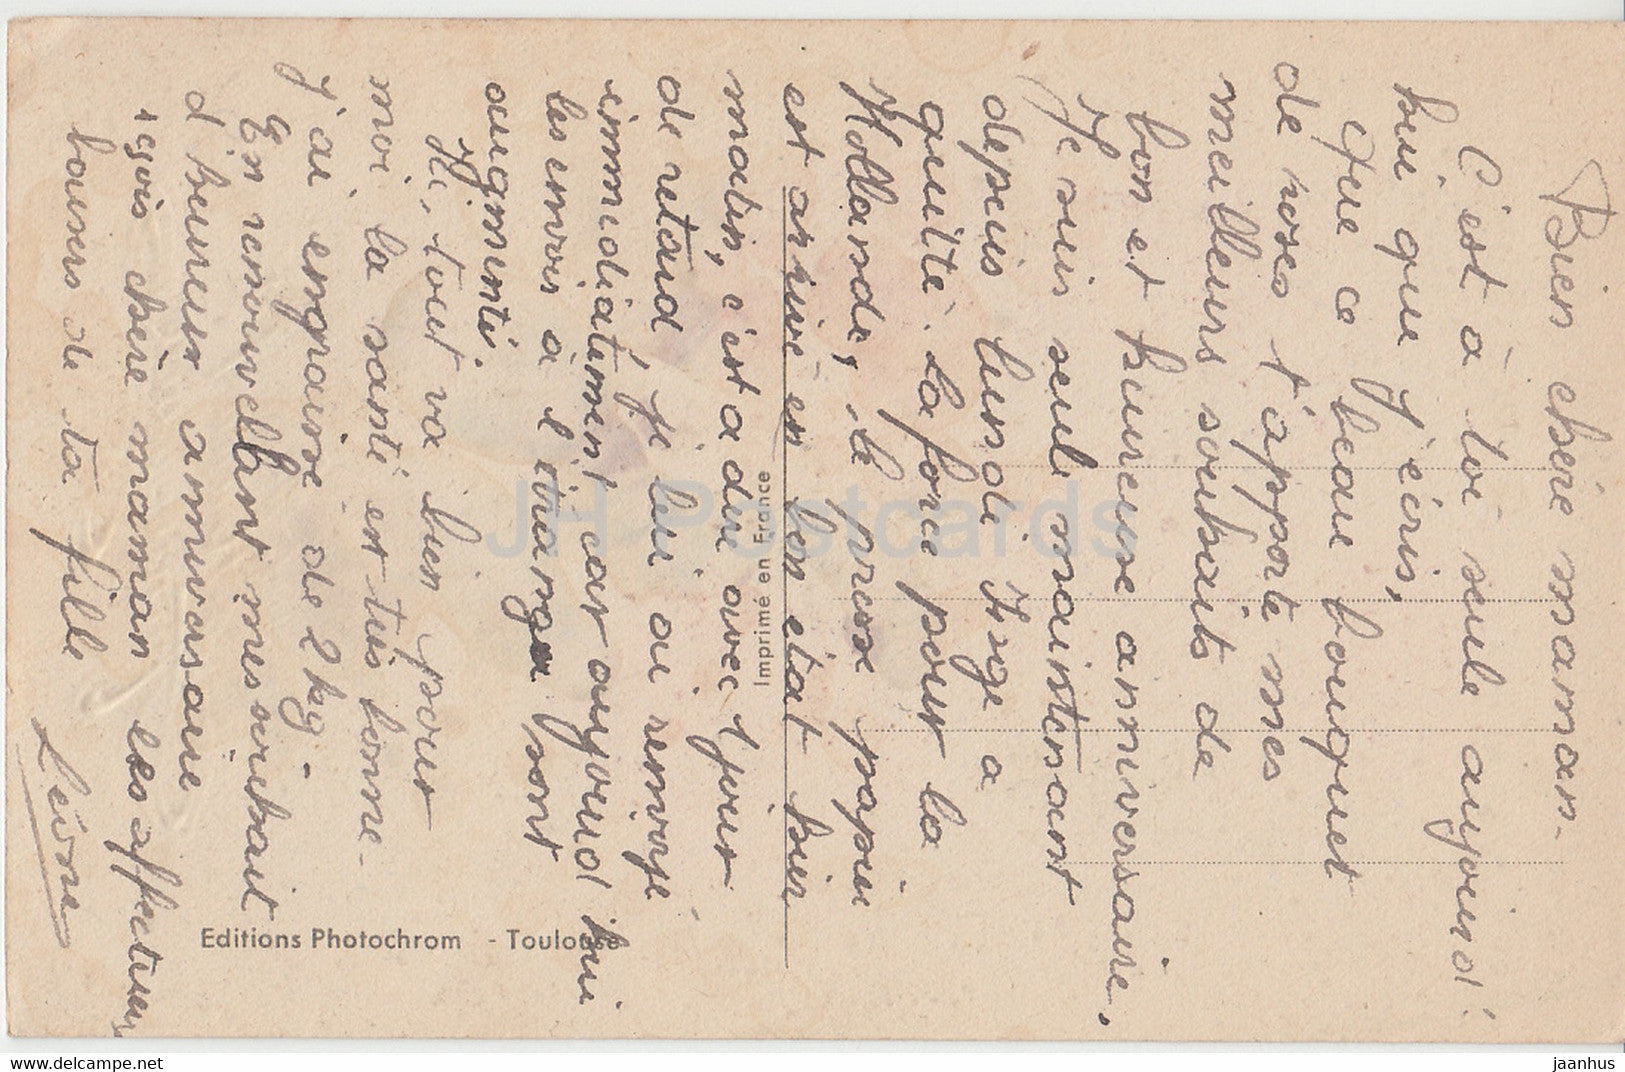 Bien chère maman.
C'est à toi seule aujourd'
hui que j'écris,
Que ce beau bouquet
de roses t'apporte mes
meilleurs souhaits de
bon et heureuse anniversaire.
Je suis seule maintenant
depuis lundi. Inge a
quitté la force pour la
Hollande, le presse papier
est arrivé en bon état hier
matin, c'est a dire avec 1 jour
de retard, je lui ai renvoyé
immédiatement car aujourd'hui
les envois à l'étranger sont
augmenté.
Ici, tout va bien pour
moi la santé est très bonne.
J'ai engraisse de 2 kg.
En renouvellant mes souhait
d'heureux anniversaire
reçois chère maman les affectueux
baisers de ta fille
Imprimé en France
Editions Photochrom - Toulouse
JH Postcards
jaanhus